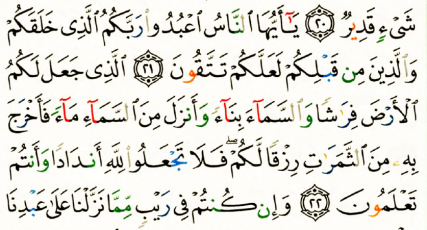 شَىْءٍ قَدِيرٌ ٢٠ يَـٰٓأَيُّهَا ٱلنَّاسُ ٱعْبُدُوا۟ رَبَّكُمُ ٱلَّذِى خَلَقَكُمْ
وَٱلَّذِينَ مِن قَبْلِكُمْ لَعَلَّكُمْ تَتَّقُونَ ٢١ ٱلَّذِى جَعَلَ لَكُمُ
ٱلْأَرْضَ فِرَٰشًا وَٱلسَّمَآءَ بِنَآءً وَأَنزَلَ مِنَ ٱلسَّمَآءِ مَآءً فَأَخْرَجَ
بِهِۦ مِنَ ٱلثَّمَرَٰتِ رِزْقًا لَّكُمْ ۖ فَلَا تَجْعَلُوا۟ لِلَّهِ أَندَادًا وَأَنتُمْ
تَعْلَمُونَ ٢٢ وَإِن كُنتُمْ فِى رَيْبٍ مِّمَّا نَزَّلْنَا عَلَىٰ عَبْدِنَا